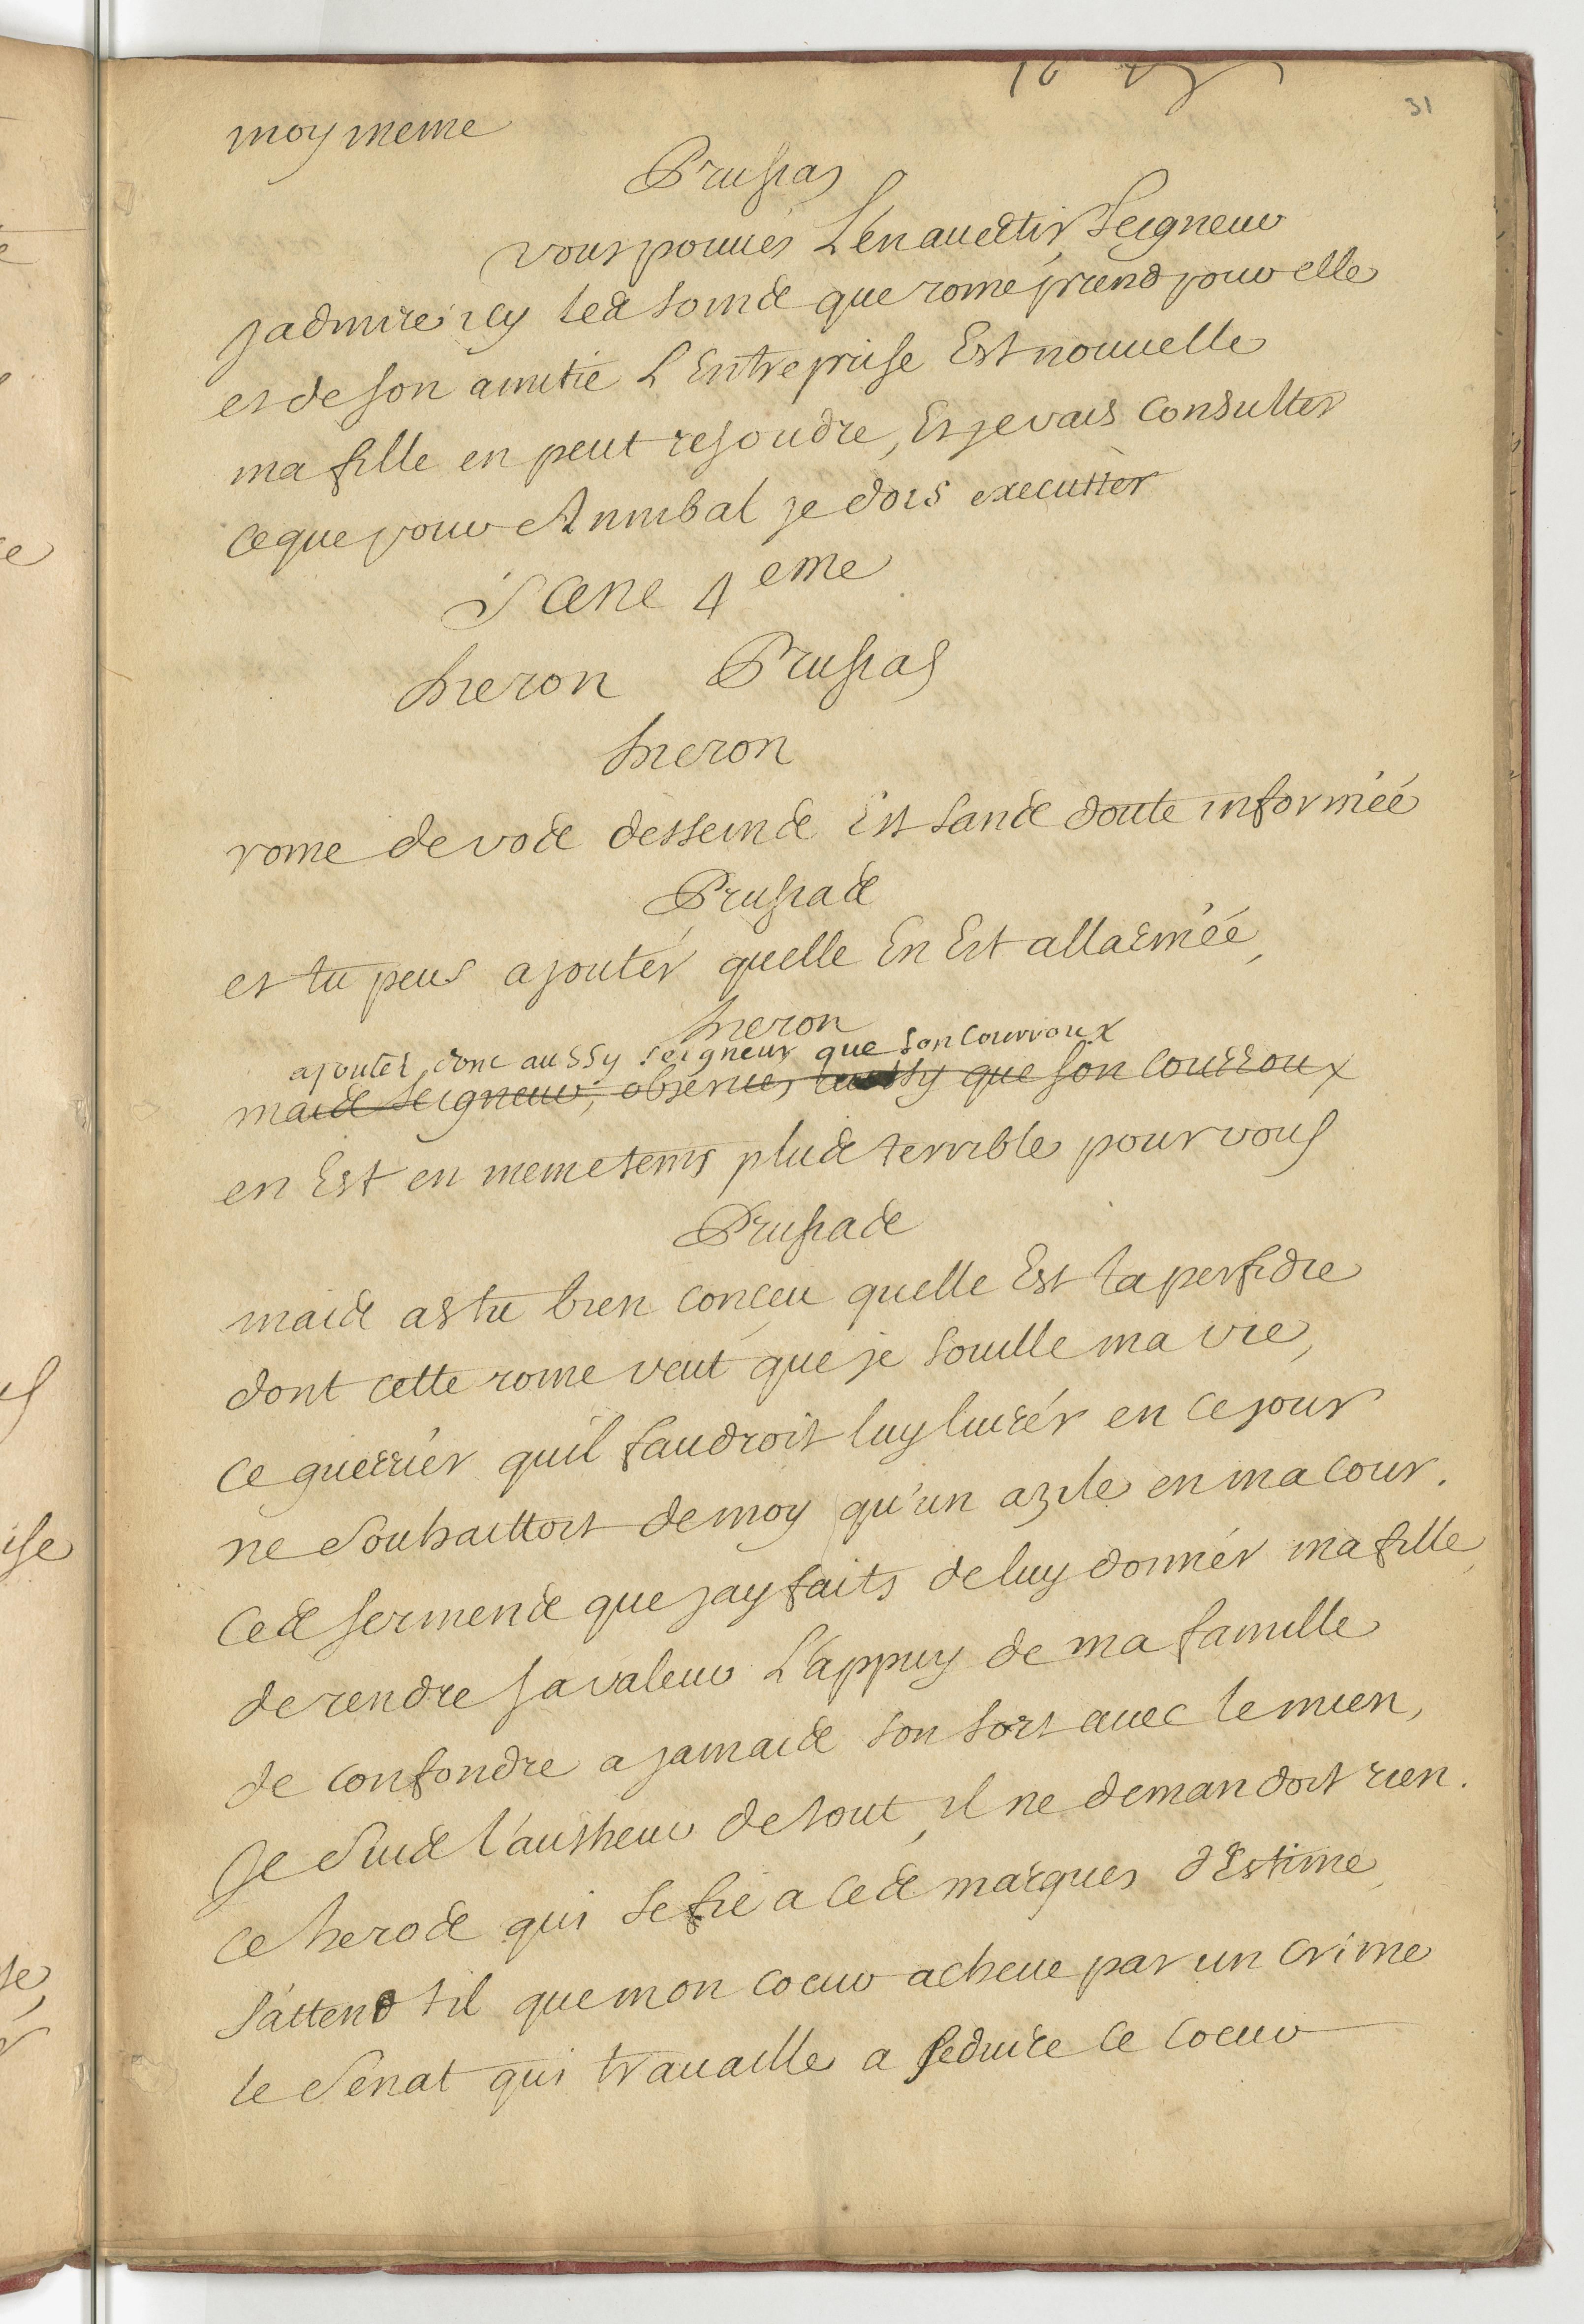 31
moy meme
Prusias
vous pouués L'en auertir, Seigneur
jadmire icy les soins que rome prend pour elle
et de son amitié L'Entreprise Est nouuelle
ma fille en peut resoudre, Et je vais consulter
ce que pour Annibal je dois executter
Scene 4eme
hieron Prusias
hieron
rome de vos desseins Est sans doute informéé
Prusias
et tu peus ajoutér quelle En Est allarméé,
hieron
ajoutés donc aussy seigneur que son courroux
mais seigneur, obserués aussy que son courroux
en Est en meme tems plus terrible pour vous
Prusias
mais as tu bien conçeu quelle Est la perfidie
dont cette rome veut que je souille ma vie,
ce guerriér quil faudroit luy liurér en ce jour
ne souhaittoit de moy qu'un azile en ma cour.
ces sermens que jay faits de luy donnér ma fille,
de rendre sa valeur L'appuy de ma famille
de confondre a jamais son sort auec le mien,
je suis l'autheur de tout, il ne demandoit rien.
ce heros qui se fie a ces marques d'Estime,
s'attend til que mon coeur acheue par un crime
le Senat qui trauaille a seduire ce coeur